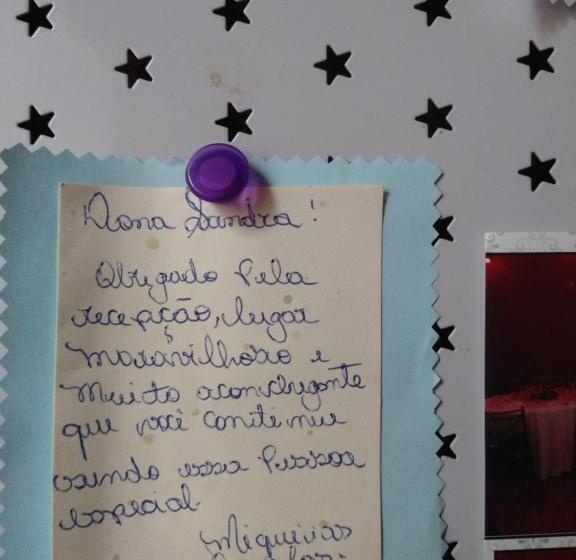 Dona Sandra!
Obrigado pela
recepção, lugar
maravilhoso e
muito aconchegante
que você continue
sendo essa pessoa
especial.
Miqueias